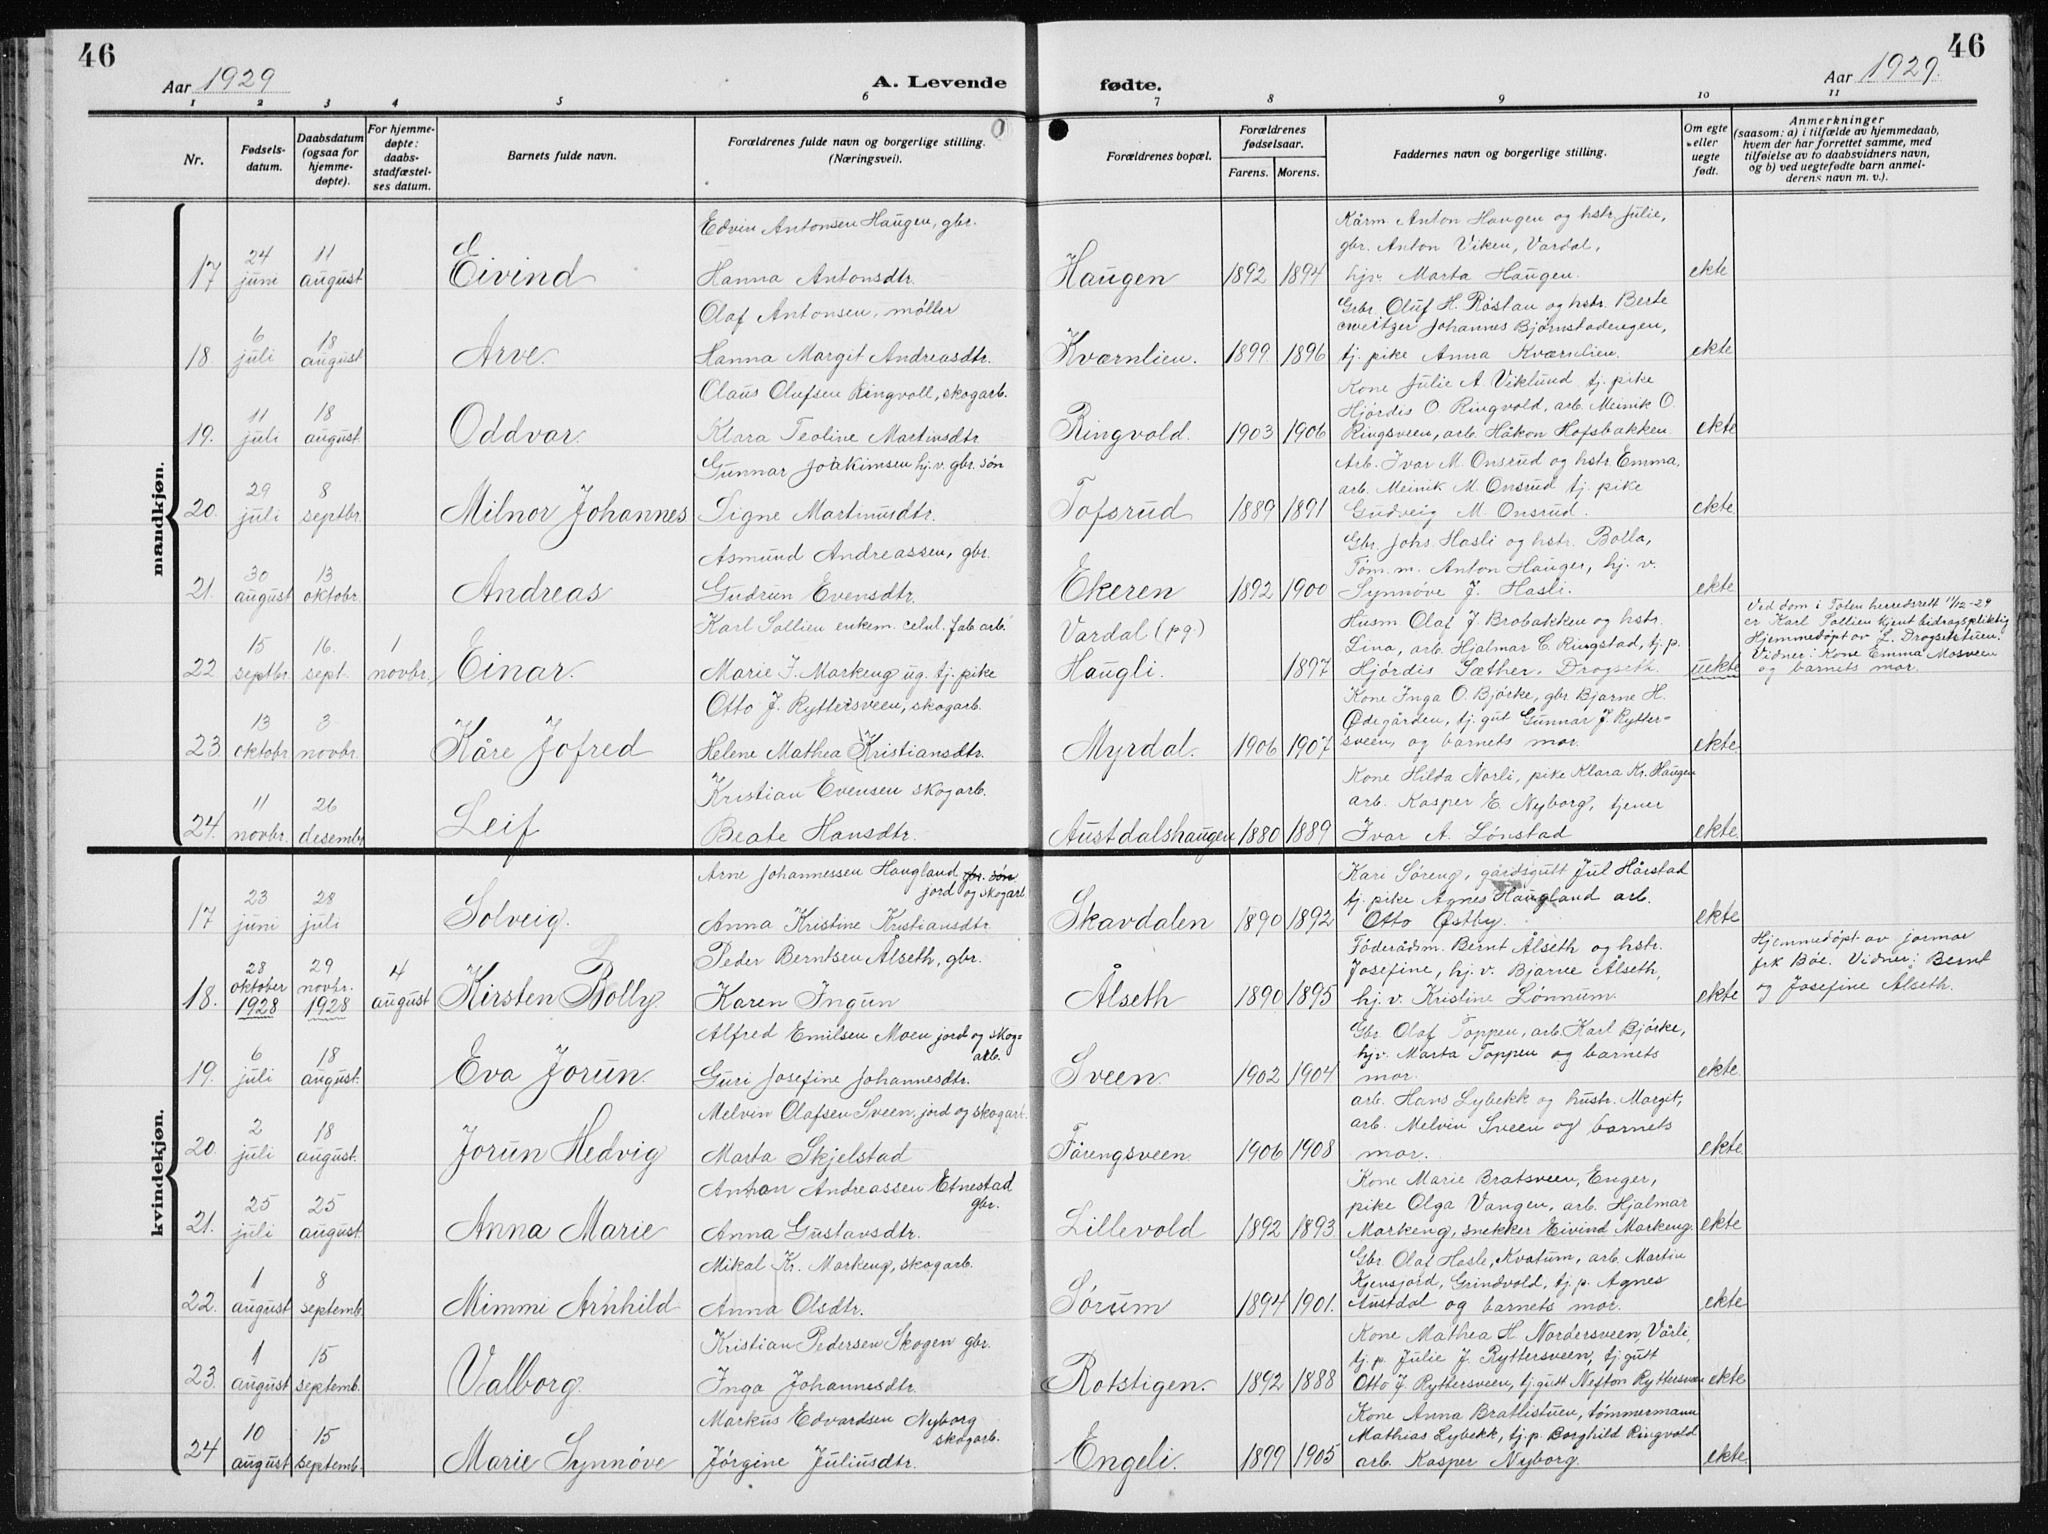 46
Aar 1929
A. Levende
fødte.
Aar 1929.
46
1 2 3 4 5 6 7 8 9 10 11
Nr.
Fødsels-
datum.
Daabsdatum
(ogsaa for
hjemme-
døpte).
For hjemme-
døpte:
daabs-
stadfæstel-
ses datum.
Barnets fulde navn.
Forældrenes fulde navn og borgerlige stilling.
(Næringsvei).
Forældrenes bopæl.
Forældrenes
fødselsaar.
Farens. Morens.
Faddernes navn og borgerlige stilling.
Om egte
eller
uegte
født.
Anmerkninger
(saasom: a) i tilfælde av hjemmedaab,
hvem der har forrettet samme, med
tilføielse av to daabsvidners navn,
og b) ved uegtefødte barn anmel-
derens navn m. v.).
mandkjøn.
Edvin Antonsen Haugen, gbr.
Kårm Anton Haugen og hstr. Julie,
24 11
gbr. Anton Viken, Vardal,
17 juni august Eivind Hanna Antonsdtr. Haugen 1892 1894 hjv. Marta Haugen. ekte
Olaf Antonsen, møller
Gbr. Oluf H. Røstau og hstr. Berte
6 18
Johannes Bjørnstadengen,
18. juli august Arve. Hanna Margit Andreasdtr. Kværnlien. 1899 1896 tj. pike Anna Kværnlien. ekte
Claus Olufsen Ringvoll, skogarb.
Kone Julie A. Viklund tj. pike
11 18
Hjørdis O Ringvold, arb. Meinik O.
19. juli august Oddvar. Klara Teoline Martinsdtr Ringvold. 1903 1906 Ringsveen, arb. Håkon Hofsbakken ekte
Gunnar Joakimsen hj. v. gbr. søn
Arb. Ivar M. Onsrud og hstr. Emma,
29 8
arb. Meinik M. Onsrud tj. pike
20. juli septbr. Milnor Johannes Signe Martinusdtr. Tofsrud 1889 1891 Gudveig M. Onsrud. ekte
Asmund Andreassen, gbr.
Gbr. Johs Hasli og hstr. Bolla,
30 13
Tøm. m. Anton Hauger, hj. v.
21. august oktobr. Andreas Gudrun Evensdtr. Ekeren 1892 1900 Synnøve J. Hasli. ekte
Karl Sollien enkem. celul. fab. arb. Vardal (pg.)
Husm Olaf J. Brobakken og hstr.
15 16. 1
Lina, arb. Hjalmar E. Ringstad, tj. p.
22 septbr. sept. novbr. Einar. Marie J. Markeng ug. tj. pike Haugli. 1897 Hjørdis Sæther. Drogseth uekte
Ved dom i Toten herredsrett 11/12-29
er Karl Sollien kjent bidragspliktig
Hjemmedøpt av L. Drogsetstuen.
Vidner: Kone Emma Mosveen
og barnets mor.
Otto J. Ryttersveen, skogarb.
Kone Inga O. Bjørke, gbr Bjarne H.
13 3
Ødegården, tj. gut Gunnar J. Rytter-
23. oktobr. novbr. Kåre Jofred Helene Mathea Kristiansdtr. Myrdal. 1906 1907 sveen, og barnets mor. ekte
Kristian Evensen skogarb.
Kone Hilda Norli, pike Klara Kr. Haugen
11 26
arb. Kasper E. Nyborg, tjener
24. novbr. desembr Leif Beate Hansdtr. Austdalshaugen 1880 1889 Ivar A. Lønstad ekte.
kvindekjøn.
Arne Johannessen Haugland gbr. søn
jord og skogarb
Kari Søreng, gårdsgutt Jul Hårstad
23 28
tj. pike Agnes Haugland arb.
17 juni juli Solveig. Anna Kristine Kristiansdtr. Skavdalen 1890 1892 Otto Østby. ekte
Peder Berntsen Ålseth, gbr.
Føderådsm. Bernt Ålseth og hstr.
28 29 4
oktober novbr.
Josefine, hj. v. Bjarne Ålseth,
18. 1928 1928 august Kirsten Bolly Karen Ingun Ålseth 1890 1895 hj. v. Kristine Lønnum. ekte
Hjemmedøpt av jormor
frk Bøe. Vidner: Bernt
og Josefine Ålseth.
Alfred Emilsen Moen jord og skog-
arb.
Gbr. Olaf Toppen, arb. Karl Bjørke,
6 18
hjv. Marta Toppen og barnets
19. juli august. Eva Jorun. Guri Josefine Johannesdtr. Sveen. 1902 1904 mor. ekte.
Melvin Olafsen Sveen, jord og skogarb.
arb. Hans Lybekk og hustr. Margit,
2 18
arb. Melvin Sveen og barnets
20. juli august. Jorun Hedvig Marta Skjelstad Fårengsveen. 1906 1908 mor. ekte
Anton Andreassen Etnestad
gbr.
Kone Marie Bratsveen, Enger,
25 25
pike Olga Vangen, arb. Hjalmar
21. juli august Anna Marie Anna Gustavsdtr. Lillevold 1892 1893. Markeng, snekker Eivind Markeng. ekte
Mikal Kr. Markeng, skogarb.
Gbr. Olaf Hasle, Kvatum, arb. Martin
1 8
Kjensjord, Grindvold, tj. p. Agnes
22. august septemb. Mimmi Arnhild Anna Olsdtr. Sørum 1894 1901. Austdal og barnets mor. ekte
Kristian Pedersen Skogen gbr.
Kone Mathea H. Nordersveen, Vårli,
1 15
tj. p. Julie J. Ryttersveen, tj. gutt
23. august septemb. Valborg. Inga Johannesdtr. Rotstigen. 1892 1888 Otto J. Ryttersveen, tj. gutt Nefton Ryttersveen ekte
Markus Edvardsen Nyborg
skogarb.
Kone Anna Bratlistuen, tømmermann
10 15
Mathias Lybekk, tj. p. Borghild Ringvold
24 august septemb. Marie Synnøve Jørgine Juliusdtr. Engeli. 1899 1905 arb. Kasper Nyborg. ekte